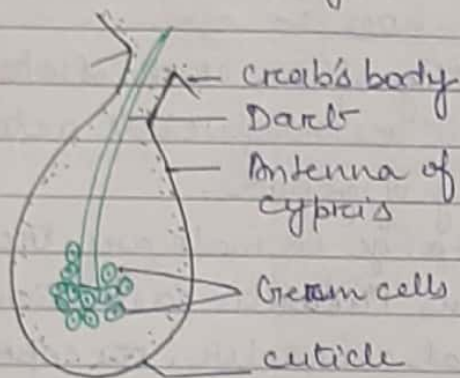 Crab's body
Dart
Antenna of
cypris
Germ cells
cuticle